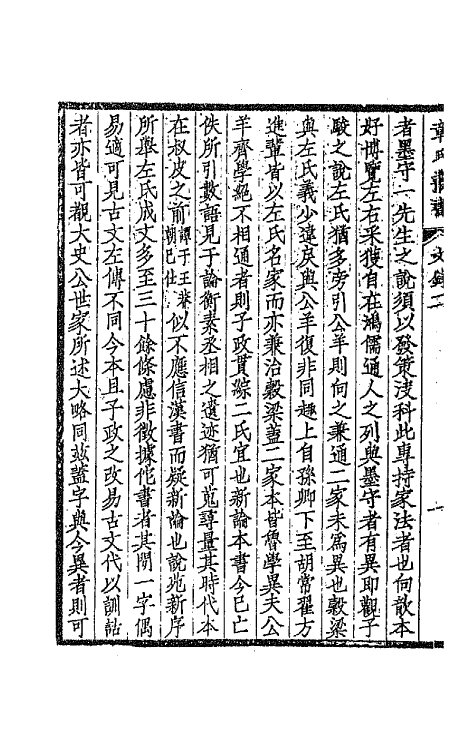 章氏叢書 文錄二
者墨守一先生之說須以發策決科此專持家法者也向歆本
好博覽左右采獲自在鴻儒通人之列與墨守者有異即觀子
駿之說左氏猶多旁引公羊則向之兼通二家未為異也穀梁
與左氏義少違戾與公羊復非同趣上自孫卿下至胡常翟方
進輩皆以左氏名家而亦兼治穀梁蓋二家本皆魯學異夫公
羊齊學絕不相通者則子政貫綜二氏宜也新論本書今已亡
佚所引數語見于論衡素丞相之遺迹猶可蒐尋量其時代本
在叔皮之前譚于王莽朝已仕似不應信漢書而疑新論也說苑新序
所舉左氏成文多至三十餘條慮非徵據佗書者其閒一字偶
易適可見古文左傳不同今本且子政之改易古文代以訓詁
者亦皆可觀大史公世家所述大略同茲蓋字與今異者則可